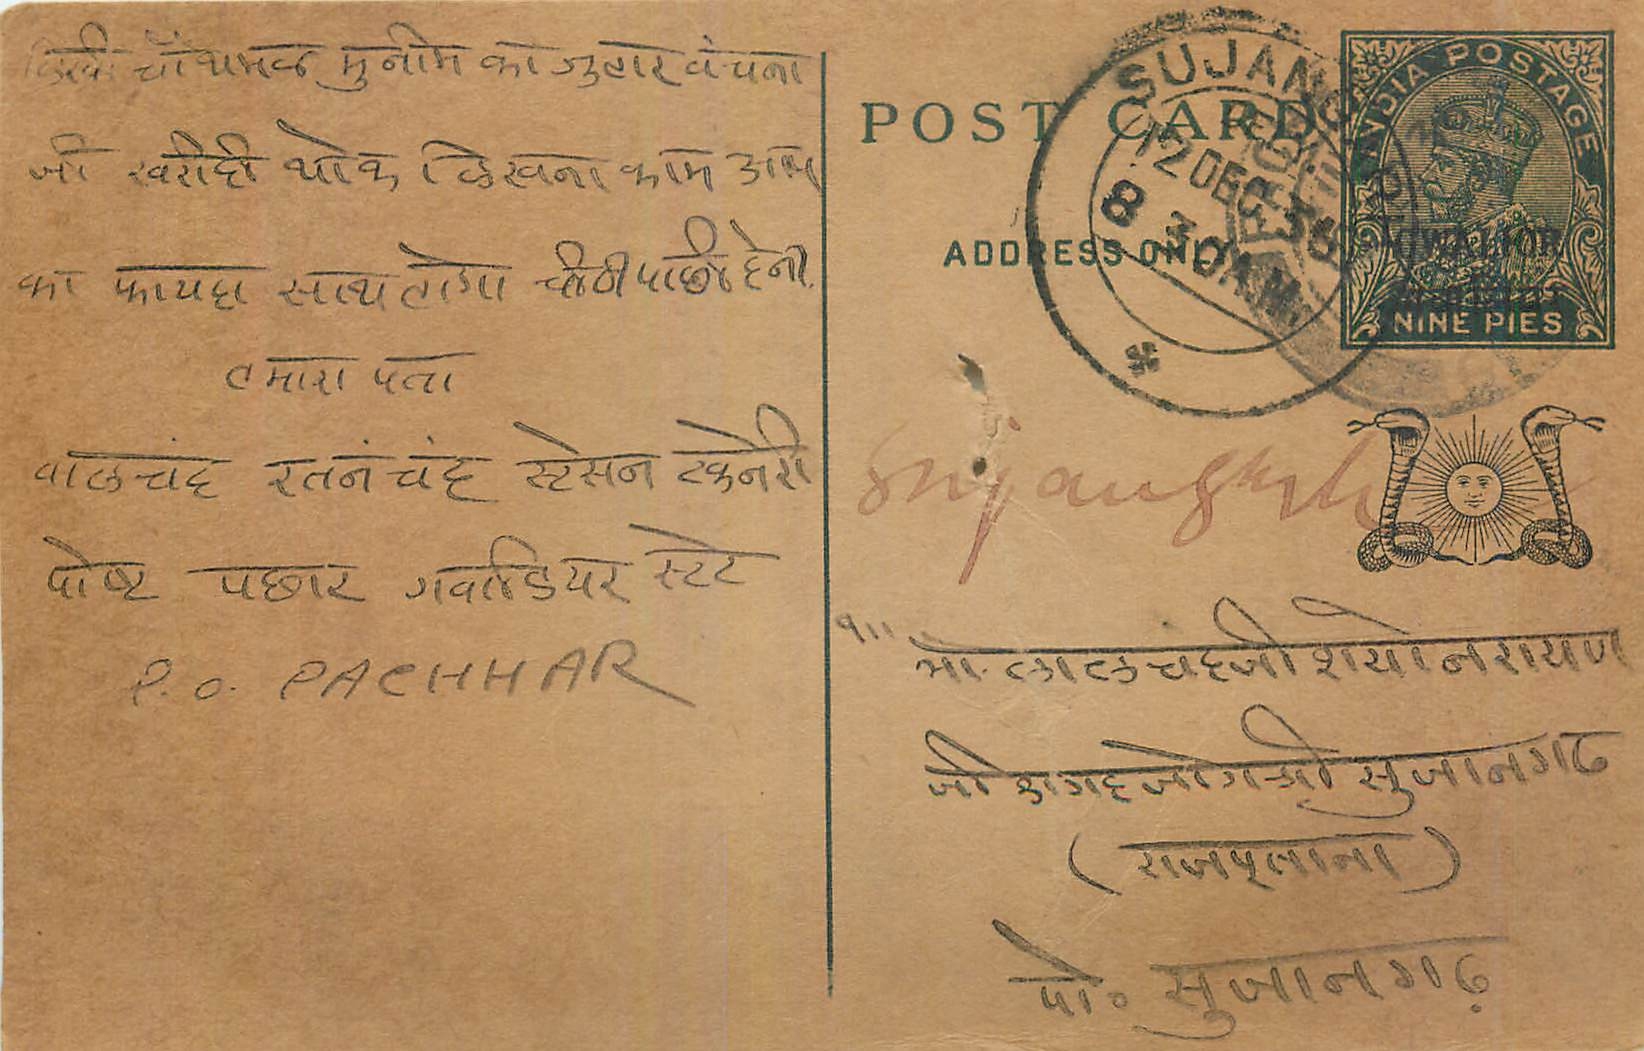 लिखी चौथमल मुनीम का जुहार वंचना
जी खरीदी थोक लिखना काम आप
का फायदा साथ होगा चीठी पाछी देनी.
हमारा पता
वालचंद रतनचंद स्टेसन टकनेरी
पोष्ट पछार गवालियर स्टेट
P.O. PACHHAR
POST CARD
ADDRESS ONLY
SUJANG
12 DEC 36
8 30 A.M.
INDIA POSTAGE
GWALIOR
NINE PIES
Sujangarh
१।।
भा. लालचंदजी शयोनरायण
जी जोग श्री सुजानगढ
(राजपूताना)
पो० सुजानगढ़